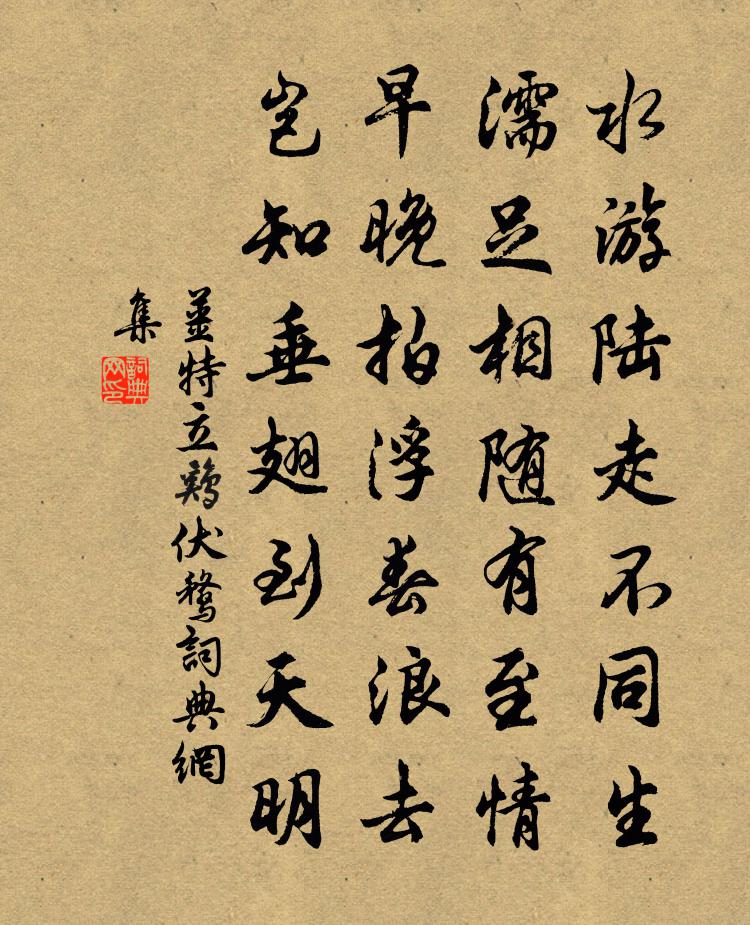 水游陆走不同生
濡足相随有至情
早晚拍浮春浪去
岂知垂翅到天明
姜特立鸡伏鹜詞典網
集
詞典
网印